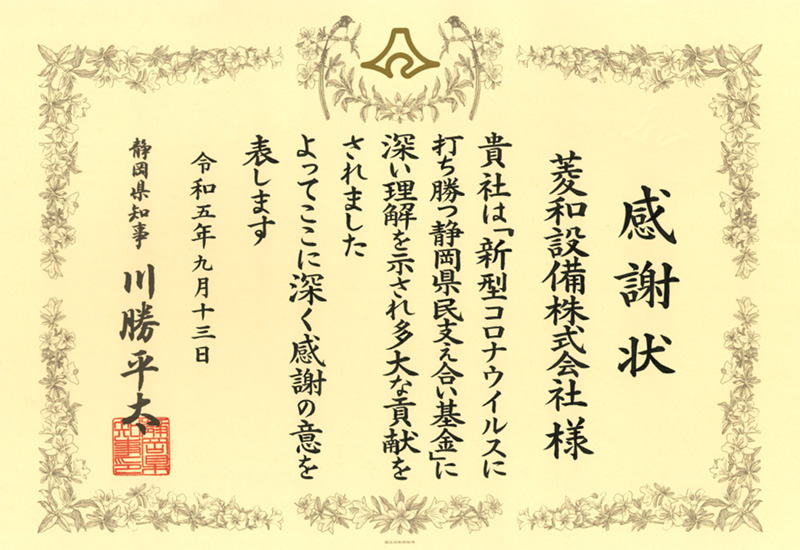 感謝状
菱和設備株式会社 様
貴社は「新型コロナウイルスに
打ち勝つ静岡県民支え合い基金」に
深い理解を示され多大な貢献を
されました
よってここに深く感謝の意を
表します
令和五年九月十三日
静岡県知事 川勝平太